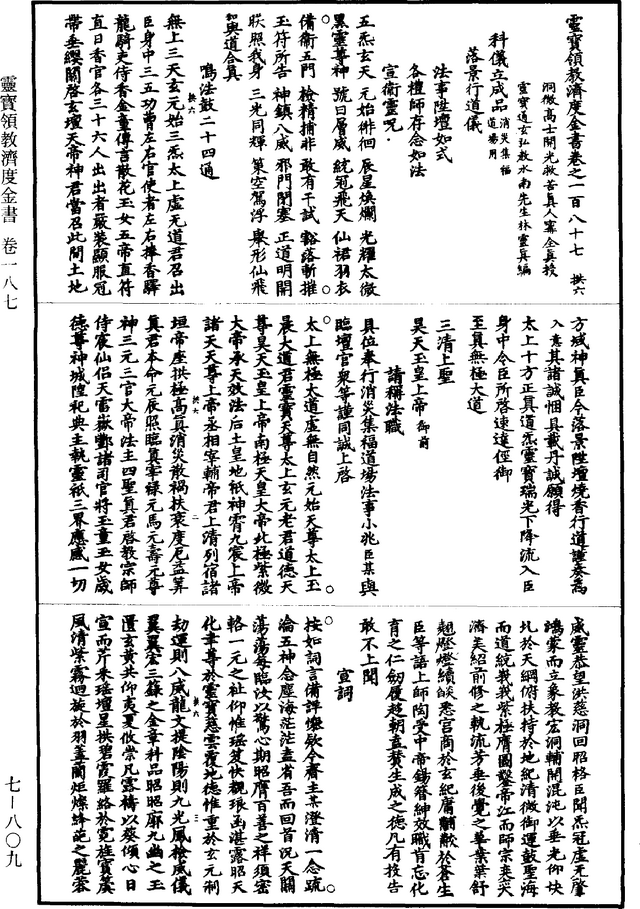 靈寶領教濟度金書卷之一百八十七 拱六
洞微高士開光救苦真人甯全真授
靈寶通玄弘教水南先生林靈真編
科儀立成品 消災集福道場用
落景行道儀
法事陞壇如式
各禮師存念如法
宣衛靈呪
五炁玄天 元始徘徊 辰星煥爛 光耀太微
黑靈尊神 號曰層威 統冠飛天 仙裙羽衣
備衛五門 檢精捕非 敢有干試 豁落斬摧
玉符所告 神鎮八威 邪門閉塞 正道明開
映照我身 三光同輝 策空駕浮 舉形仙飛
與道合真
鳴法鼓二十四通
無上三天玄元始三炁太上虛无道君召出
臣身中三五功曹左右官使者左右捧香驛
龍騎吏侍香金童傳言散花玉女五帝直符
直日香官各三十六人出出者嚴裝顯服冠
帶垂纓關啓玄壇天帝神君當召此間土地
方域神真臣今落景陞壇燒香行道謹奏為
入意其諸誠悃具載丹誠願得
太上十方正真道炁靈寶瑞光下降流入臣
身中令臣所啓速達徑御
至真無極大道
三清上聖
昊天玉皇上帝 御前
請稱法職
具位奉行消災集福道場法事小兆臣某與
臨壇官衆等謹同誠上啓
太上無極太道虛無自然元始天尊太上玉
晨大道君靈寶天尊太上玄元老君道德天
尊昊天玉皇上帝南極天皇大帝北極紫微
大帝承天效法后土皇地祇神霄九宸上帝
諸天天尊上帝丞相宰輔帝君上清列宿諸
垣帝座拱極高真消災散禍扶衰度厄益筭
真君本命元辰照臨真宰祿元馬元壽元尊
神三元三官大帝法主四聖真君啓教宗師
侍宸仙侶天雷嶽酆諸司官將玉童玉女歲
德尊神城隍祀典主執靈祇三界應感一切
威靈恭望洪慈洞回昭格臣聞炁冠虛无肇
鴻蒙而立象教宏洞輔開混沌以垂光仰炔
圠於天綱俯扶持於地紀清微御運鼓聖海
而道統峩峩紫極膺圖鑿帝江而師宗奕奕
濟美紹前修之軌流芳垂後覺之華葉葉舒
翹燈燈續燄悉宮商於玄紀庸黼黻於蒼生
臣等謬上師陶受中帝錫簪紳效職肯忘化
育之仁劒履趨朝盍贊生成之德凡有投告
敢不上聞
宣詞
按如詞言備詳懺欵今齋主某澄清一念疏
瀹五神念塵海茫茫盍省吾而回首況天關
蕩蕩每臨汝以驚心期昭膺百善之祥須密
輅一元之祉仰惟瑶笈快覩琅函湛露昭天
化聿尊於靈寶慈雲覆地德惟重於玄元洞
劫運則八威龍文提陰陽則九光鳳檢威儀
翼翼宏三籙之金章科品昭昭廓九幽之玉
匱玄黃共仰夷夏攸崇凡露禱以葵傾心日
宣而芹采瑶壇星拱碧霞羅絡於霓旌寶蓋
風清紫霧迴旋於羽蓋蘭炬燦蜂葩之麗蓉
靈寶領教濟度金書 卷一八七
七—八〇九